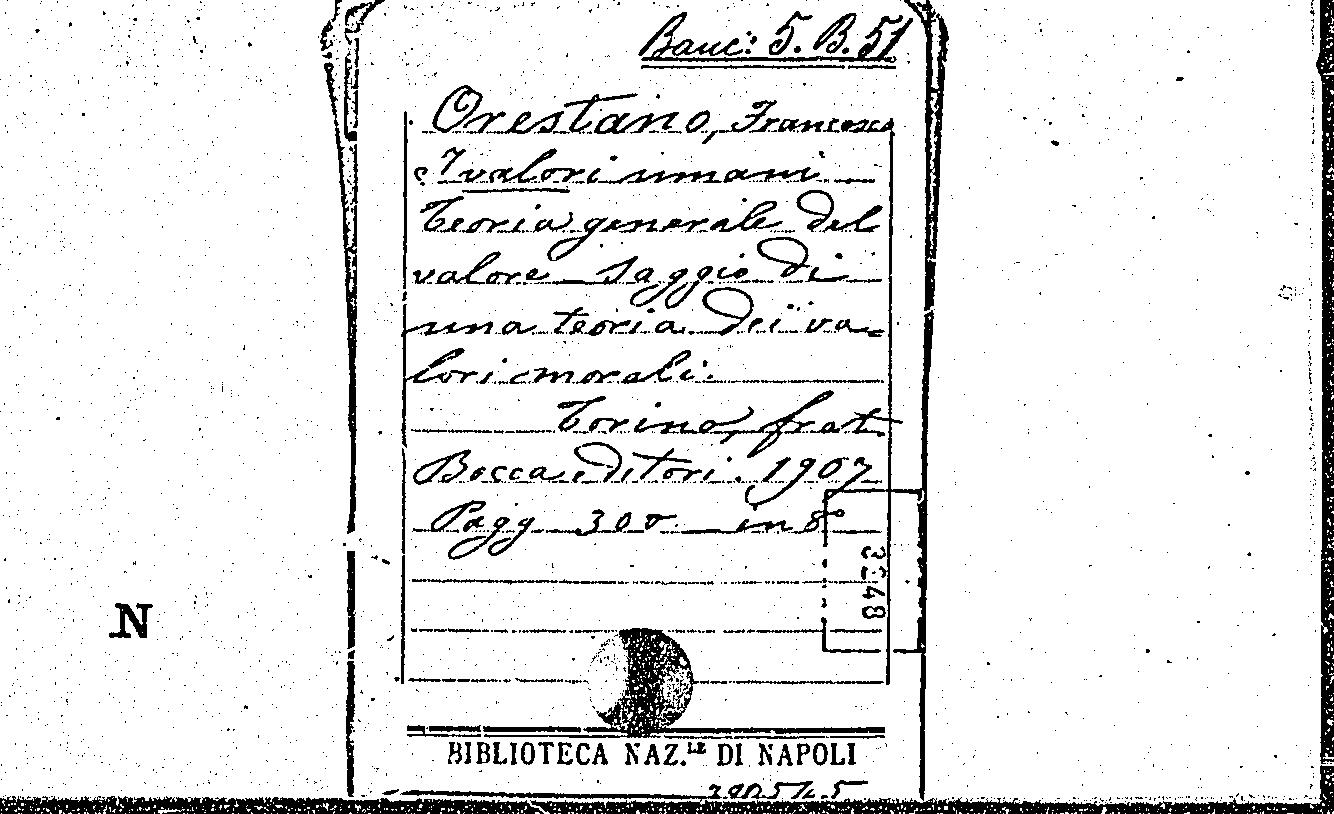 Banc: 5. B. 51
Orestano, Francesco
I valori umani
Teoria generale del
valore Saggio di
una teoria dei va-
lori morali.
Torino, frat.
Bocca editori. 1907
Pagg 300 in 8°
3248
N
BIBLIOTECA NAZ.LE DI NAPOLI